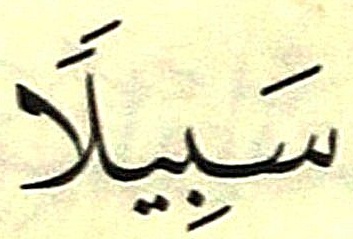 سَبِيلًا